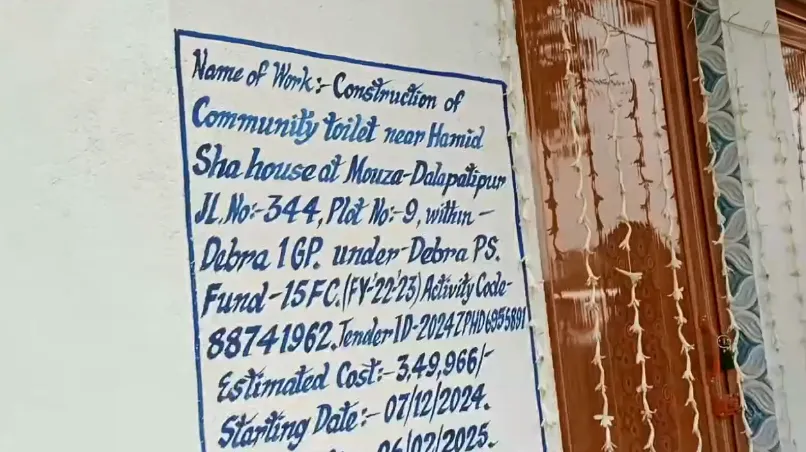 Name of Work:- Construction of
Community toilet near Hamid
Sha house at Mouza-Dalapatipur
JL.No:-344, Plot No:-9, within-
Debra 1 GP. under-Debra PS.
Fund-15FC.(FY-'22-'23) Activity Code-
88741962. Tender ID-2024ZPHD6955891
Estimated Cost:- 3,49,966/-
Starting Date:- 07/12/2024.
06/02/2025.